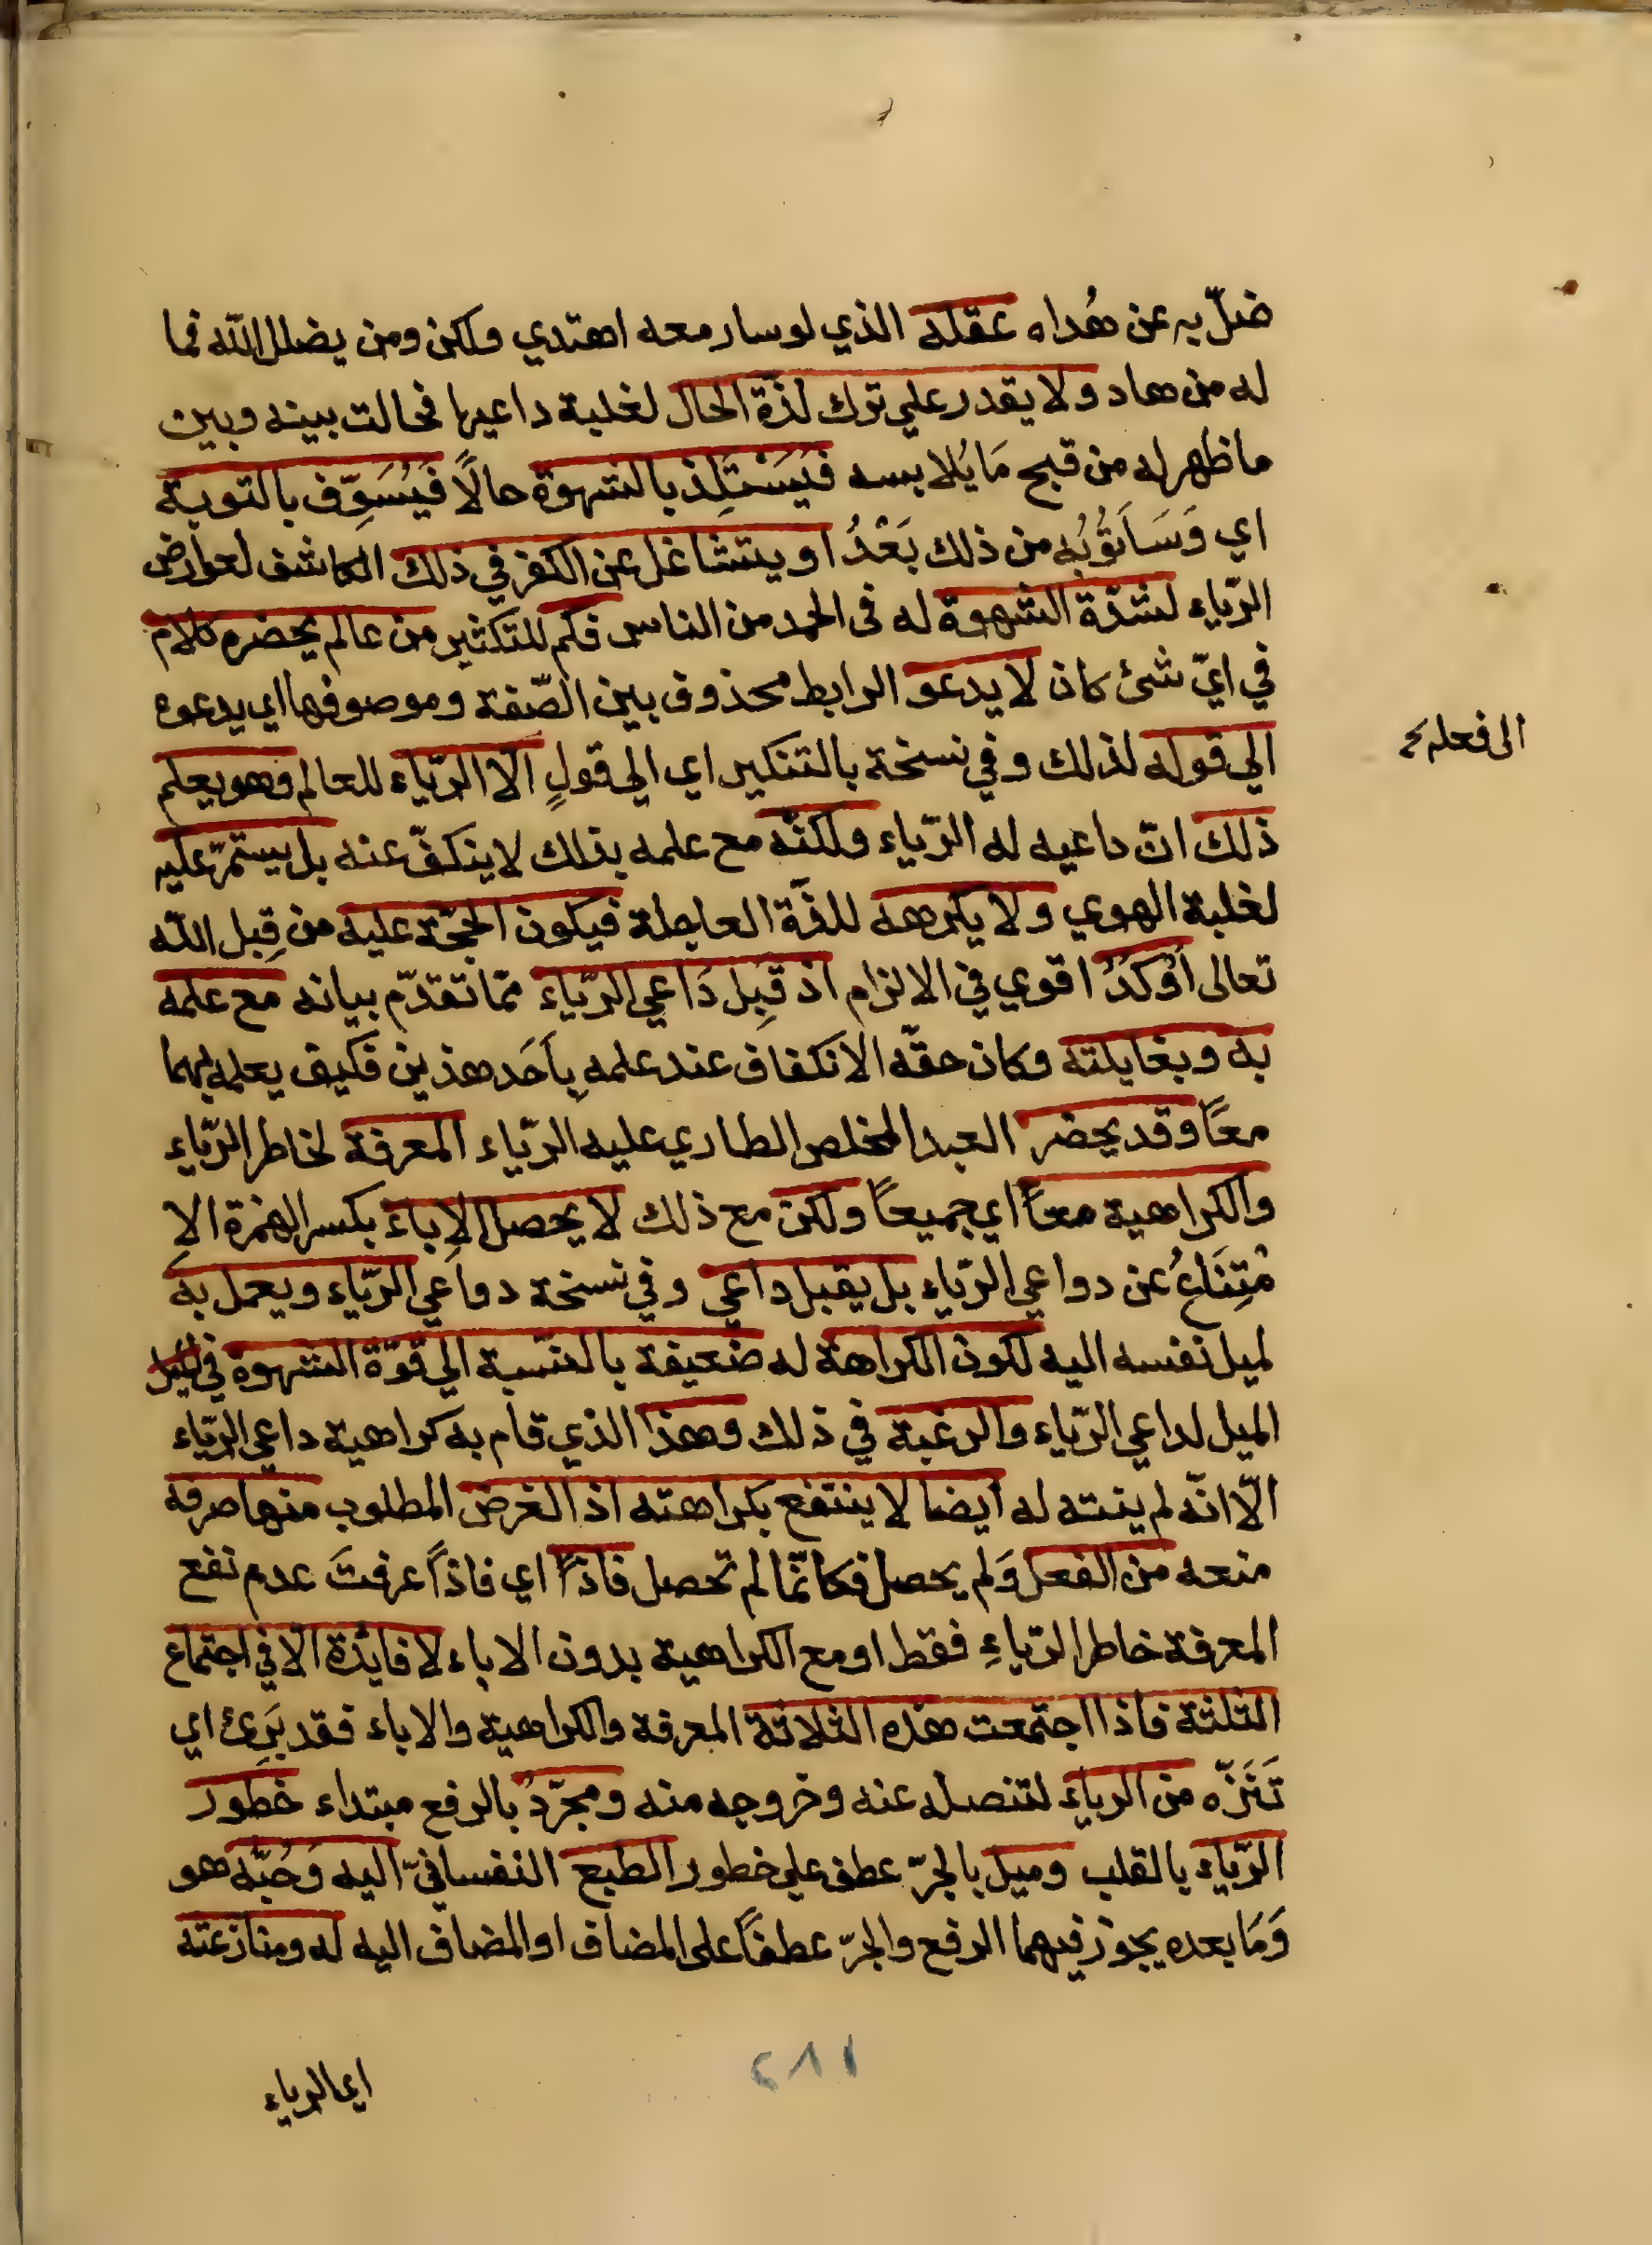 ضلّ به عن هُداه عقله الذي لو سار معه اهتدي ولكن ومن يضلل الله فما
له من هاد ولا يقدر علي ترك لذّة الحال لغلبة داعيها فحالت بينه وبين
ما ظهر له من قبح مَا يُلابسه فَيَسْتَلِذ بالشهوة حالًا فَيُسَوِّف بالتوبة
اي وَسَاَتُوبُ من ذلك بَعْدُ او يتشاغل عن الكفر في ذلك الكاشف لعوارض
الرّياء لشدّة الشهوة له فى الحمد من الناس فكم للتكثير من عالم يحضره كلام
في ايّ شئ كان لا يدعو الرابط محذوف بين الصّفة وموصوفها اي يدعوه
الي قوله لذلك وفي نسخة بالتنكير اي الي قولٍ الا الرّياء للعالم وهو يعلم
ذلك انّ داعيه له الرّياء ولكنّه مع علمه بذلك لا ينكفّ عنه بل يستمرّ عليه
لغلبة الهوي ولا يكرهه للذّة العاجلة فيكون الحجّة عليه من قِبل الله
تعالى أوكَدُ اقوي في الالزام اذ قَبِل دَاعي الرّياء ممّا تقدّم بيانه مع علمه
به وبغايلته وكان حقّه الانكفاف عند علمه بِاَحَد هذين فكيف يعلمه بهما
معًا وقد يحضر العبد المخلص الطاري عليه الرّياء المعرفة لخاطر الرّياء
والكراهية معًا اي جميعًا ولكن مع ذلك لا يحصل الاِباء بكسر الهمزة الا
مْتِنَاعُ عن دواعي الرّياء بل يقبل داعي وفي نسخة دواعي الرّياء ويعمل به
لميل نفسه اليه لكون الكراهة له ضعيفة بالنّسبة الي قوّة الشهوة في نيل
الميل لداعي الرّياء والرغبة في ذلك وهذا الذي قام به كراهية داعي الرّياء
الّا انّه لم ينته له ايضا لا ينتفع بكراهته اذ الغرض المطلوب منها صرفه
منعه من الفعل وَلم يحصل فكانّما لم تحصل فاذًا اي فاذًا عرفتَ عدم نفع
المعرفة خاطر الرّياءِ فقط او مع الكراهية بدون الاباء لا فايدة الا في اجتماع
الثلثة فاذا اجتمعت هذه الثلاثة المعرفة والكراهية والاباء فقد بَرِئ اي
تَنَزّه من الرياء لتنصله عنه وخروجه منه ومجرّدُ بالرفع مبتداء خطور
الرّياء بالقلب وميل بالجرّ عطف علي خطور الطبع النفسانيّ اليه وَحُبّه هو
وَمَا بعده يجوز فيهما الرفع والجرّ عطفًا على المضاف او المضاف اليه له ومنازعته
الى فعله
اي الرياء
٢٨١